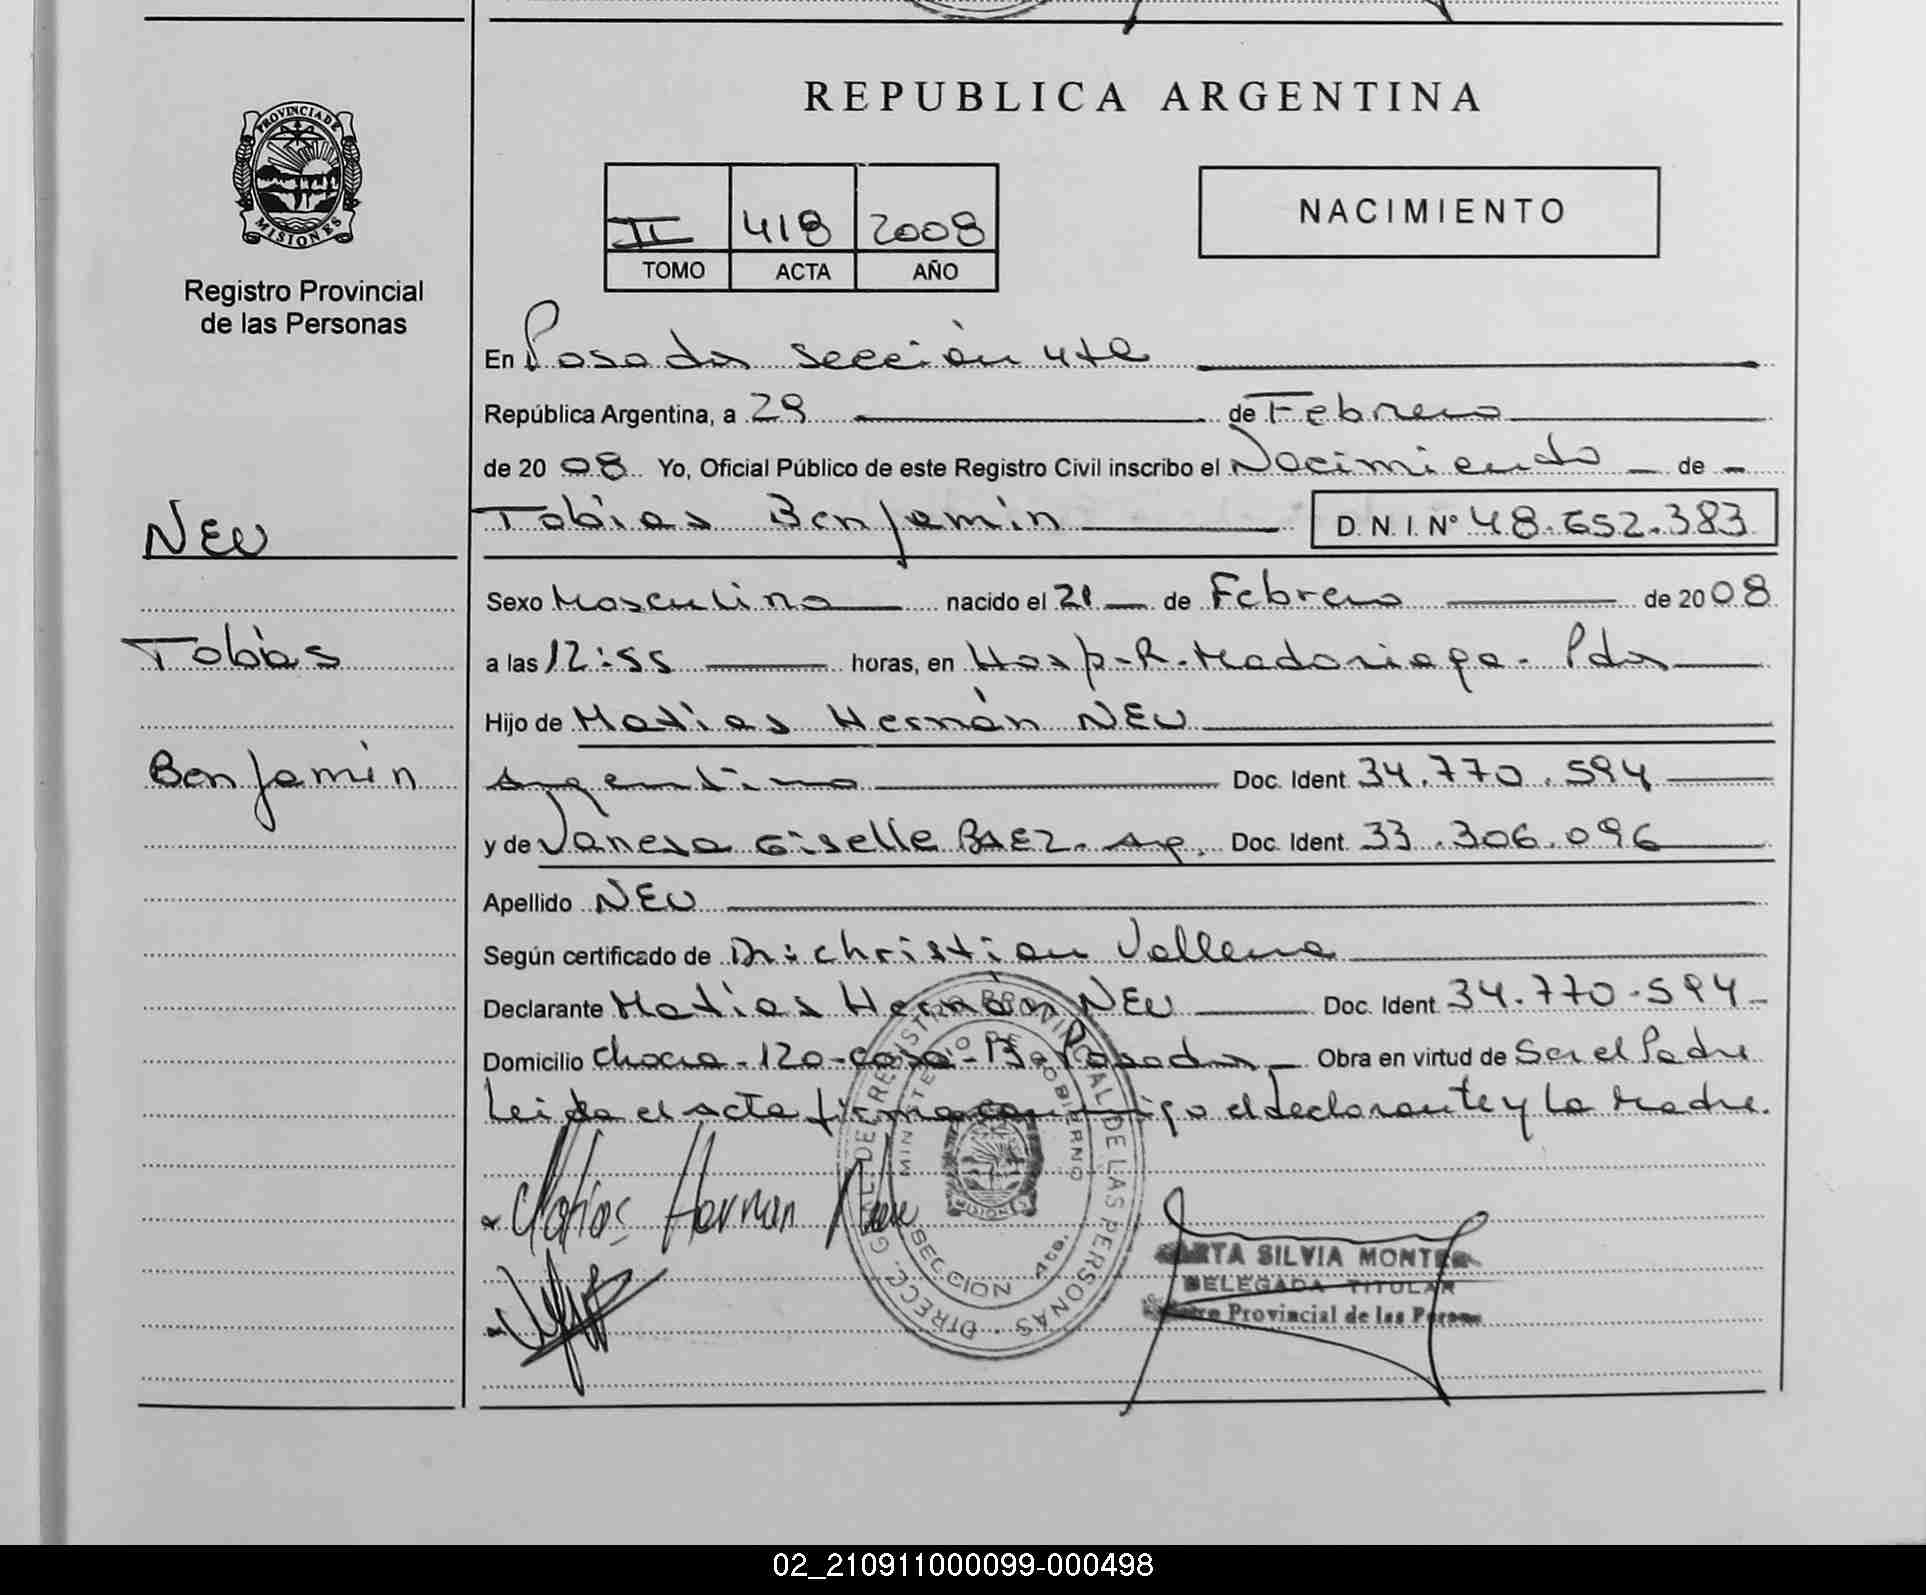 REPUBLICA ARGENTINA
PROVINCIA DE
MISIONES
Registro Provincial
de las Personas
II 418 2008
TOMO ACTA AÑO
NACIMIENTO
En Posadas sección 4ta
República Argentina, a 29 de Febrero
de 2008 Yo, Oficial Público de este Registro Civil inscribo el Nacimiento de
Tobías Benjamín D. N. I. Nº 48.652.383
NEU
Tobías
Benjamín
Sexo Masculino nacido el 21 de Febrero de 2008
a las 12:55 horas, en Hosp-R-Madariaga- Pdas
Hijo de Matías Hernán NEU
Argentino Doc. Ident. 34.770.594
y de Vanesa Giselle BAEZ. Arg. Doc. Ident. 33.306.096
Apellido NEU
Según certificado de Dr: Christian
Declarante Matías Hernán NEU Doc. Ident. 34.770-594
Domicilio chacra-120-casa- Posadas Obra en virtud de Ser el Padre
Leida el acta firma conmigo el declarante y la Madre.
Matias Hernan Neu
DIRECC. GRAL. DEL REGISTRO PROVINCIAL DE LAS PERSONAS
MINISTERIO DE GOBIERNO
SECCION 4ta.
SILVIA
DELEGADA TITULAR
Provincial de las
02_210911000099-000498